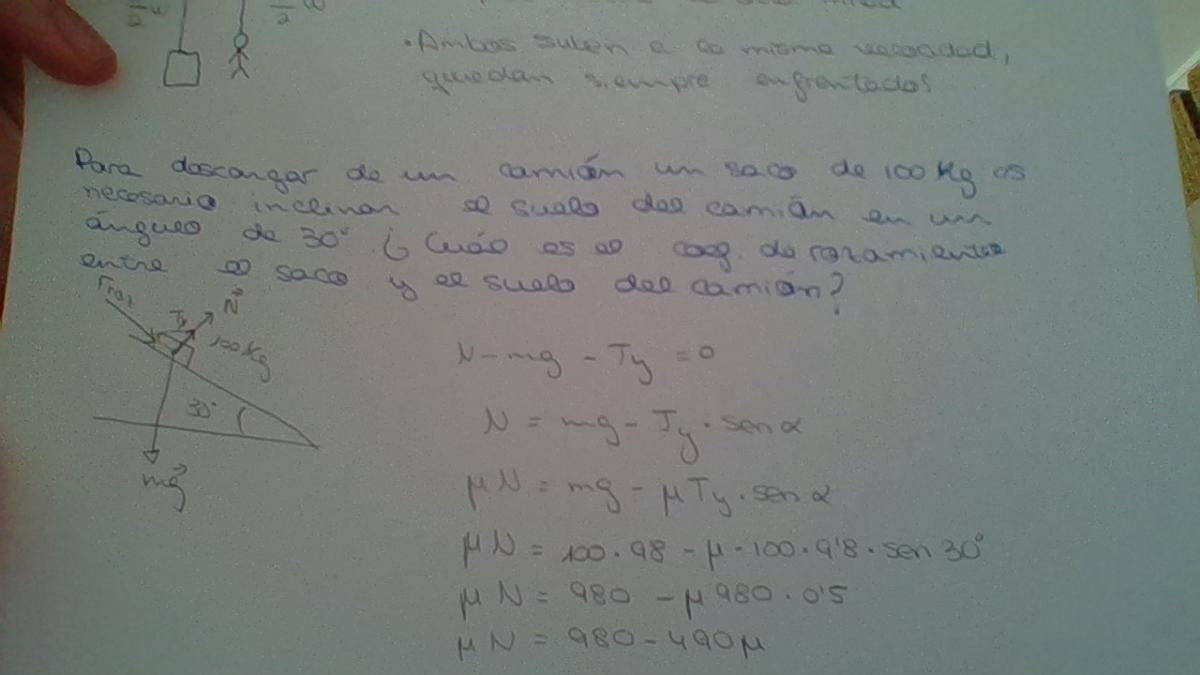 2
2
• Ambos suben a la misma velocidad,
quedan siempre enfrentados
Para descargar de un camión un saco de 100 Kg es
necesario inclinar el suelo del camión en un
ángulo de 30°. ¿Cuál es el coef. de rozamiento
entre el saco y el suelo del camión?
Froz
Ty
N
100 Kg
30°
mg
N - mg - Ty = 0
N = mg - Ty · sen α
μ N = mg - μ Ty · sen α
μ N = 100 · 98 - μ · 100 · 9'8 · sen 30°
μ N = 980 - μ 980 · 0'5
μ N = 980 - 490 μ